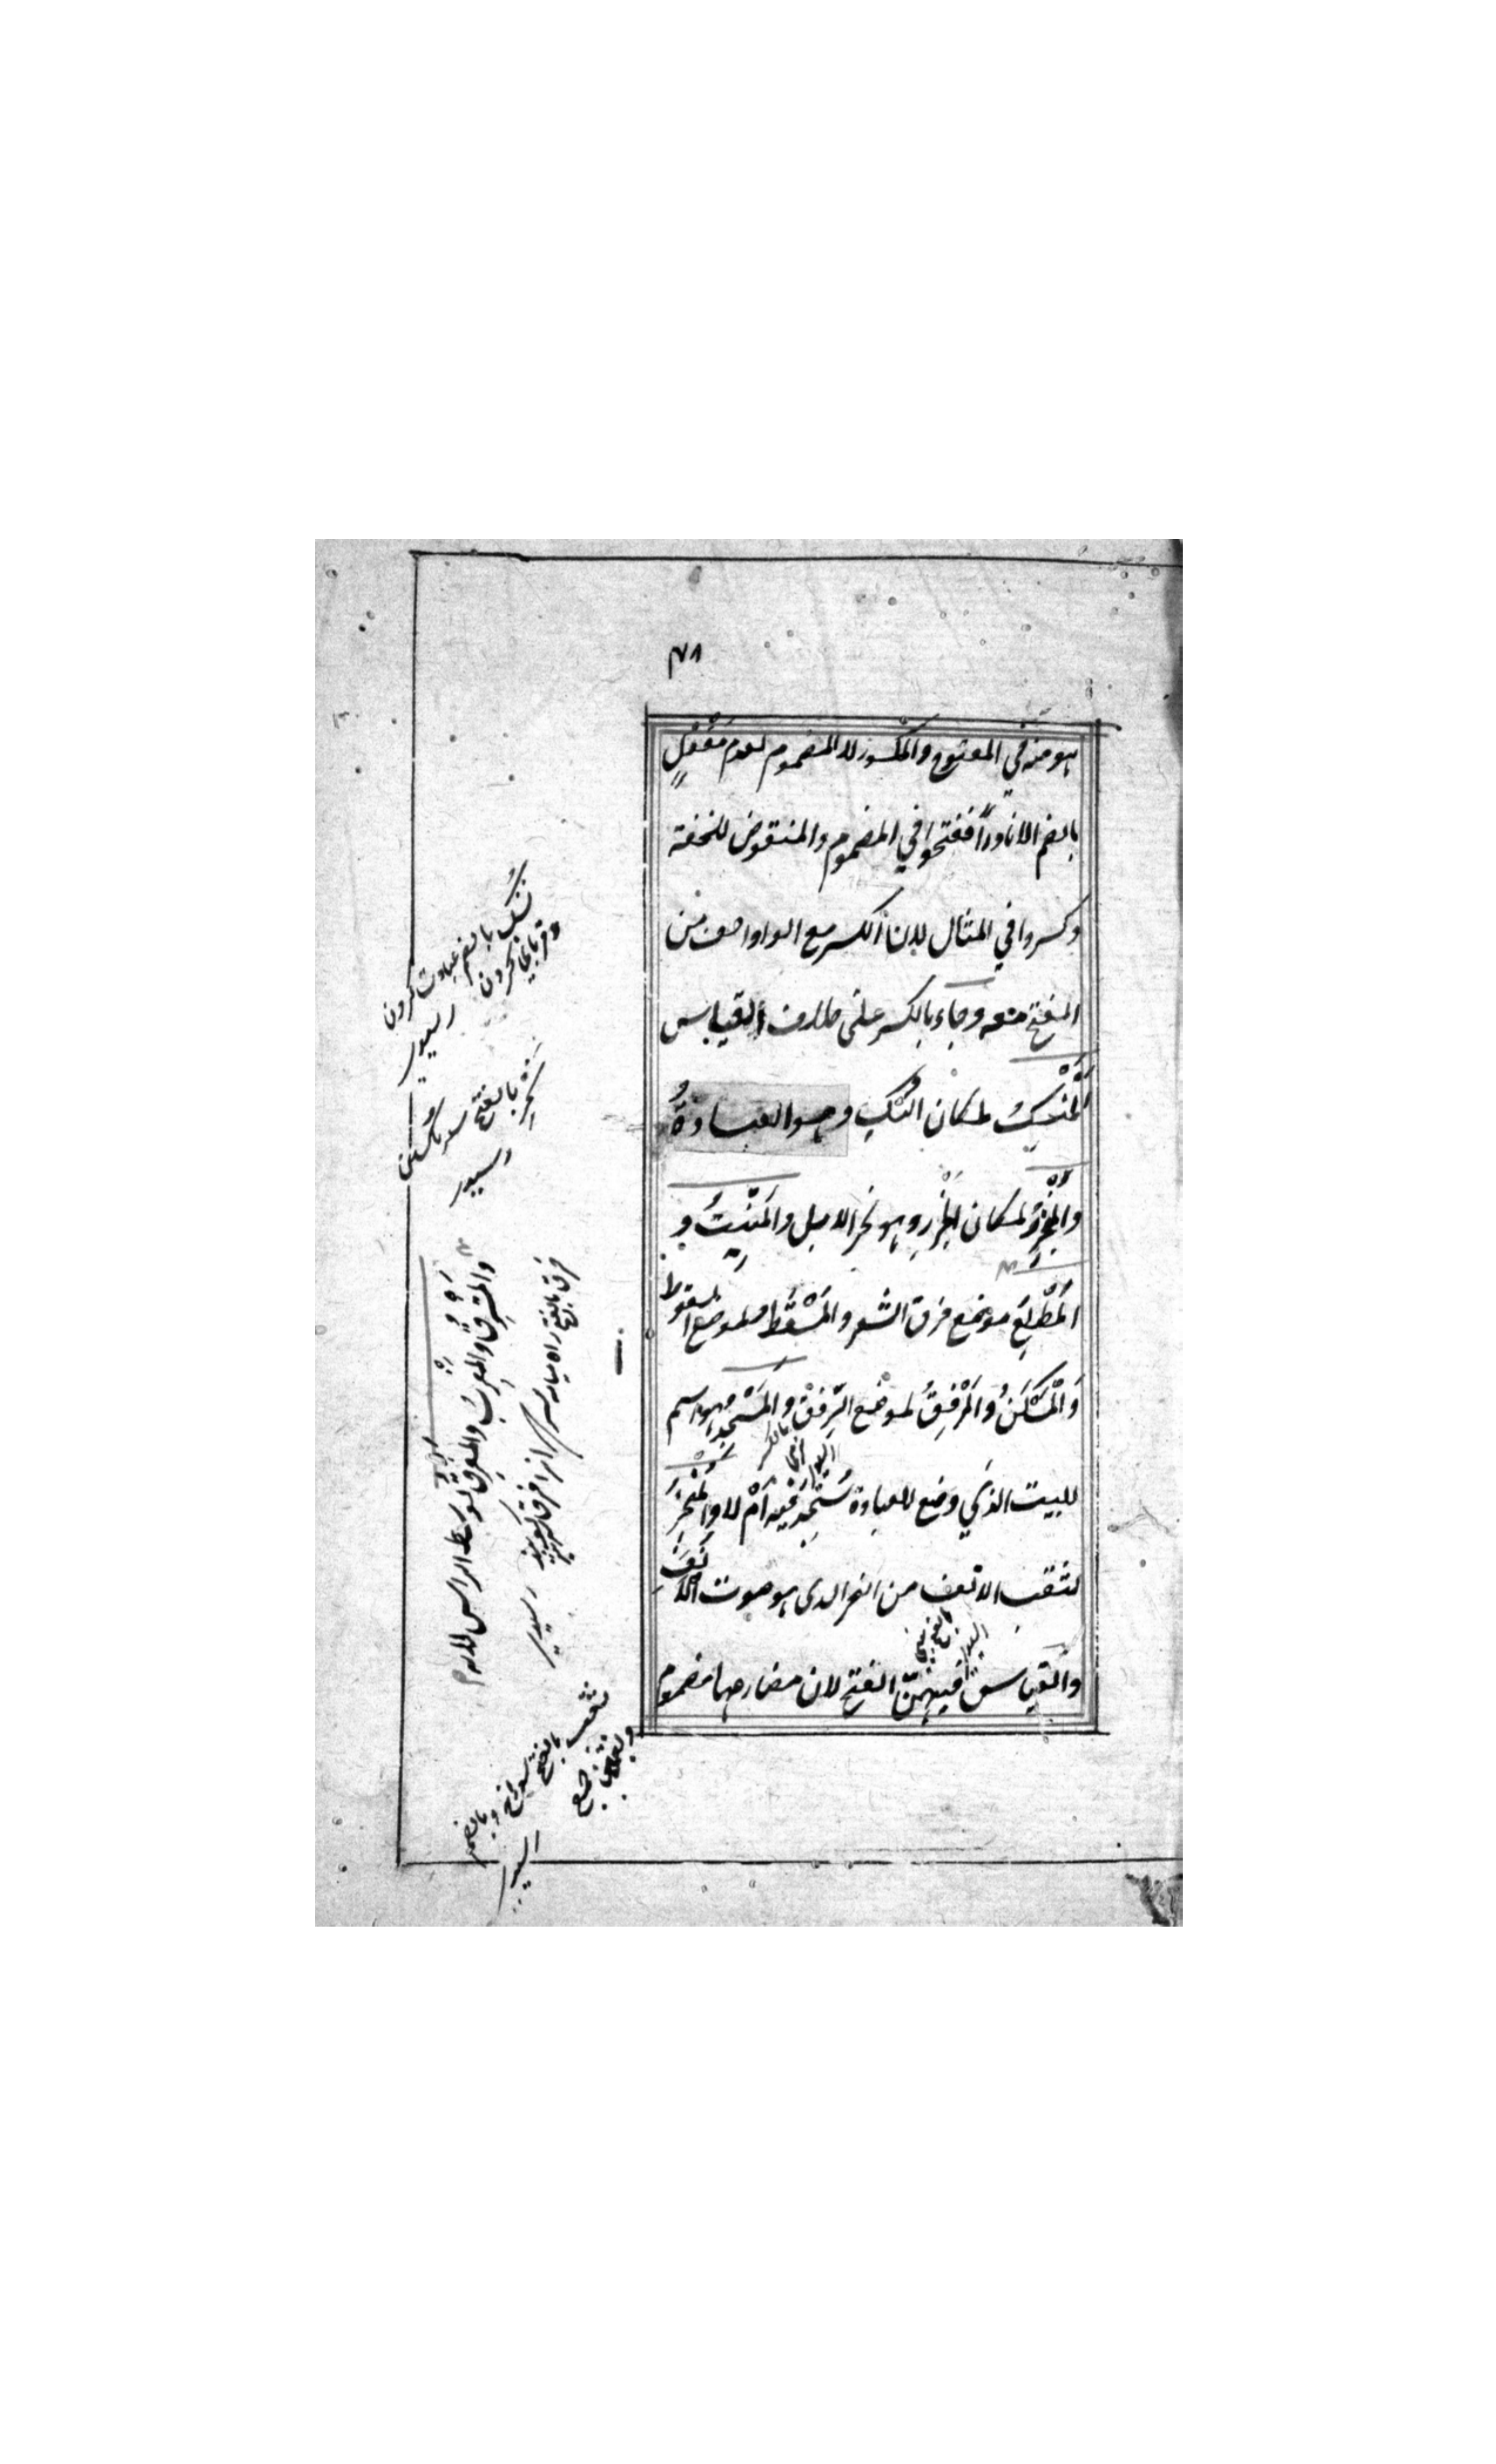 ٧٨
هو منه في المفتوح والمكسور لا المضموم لعدم مَفْعُلٍ
بالضم الا نادراً ففتحوا في المضموم والمنقوض للخفة
وكسروا في المثال لان الكسر مع الواو اخف من
الفتح معه وجاء بالكسر على خلاف القياس
اَلْمَنْسِكُ لمكان النُّسُكِ وهو العبادةُ
والْمَجْزِرُ لمكان الجَزْرِ وهو نحر الابل والمَنْبِتُ و
المَطْلِعُ موضع فرق الشعر والْمَسْقِطُ لموضع السقوط
وَالْمَسْكَنُ والْمَرْفِقُ لموضع الرِّفْقِ والْمَسْجِدُ وهو اسم
للبيت الذي وضع للعبادة سُجِدَ فيه اَمْ لا والْمَنْخِرُ
لثقب الانف من النخر الذي هو صوت الاَنْفِ
والقياس فيهنّ الفتح لان مضارعها مضموم
نُسُك بالضم عبادت كردن
وقربانی کردن
جَزْر بالفتح
والمَشْرِقُ والمَغْرِبُ والمَفْرِقُ لوسط الراس لانه
فرق بالفتح راه میانه سر
ثقب بالفتح سوراخ وبالضم
جمع